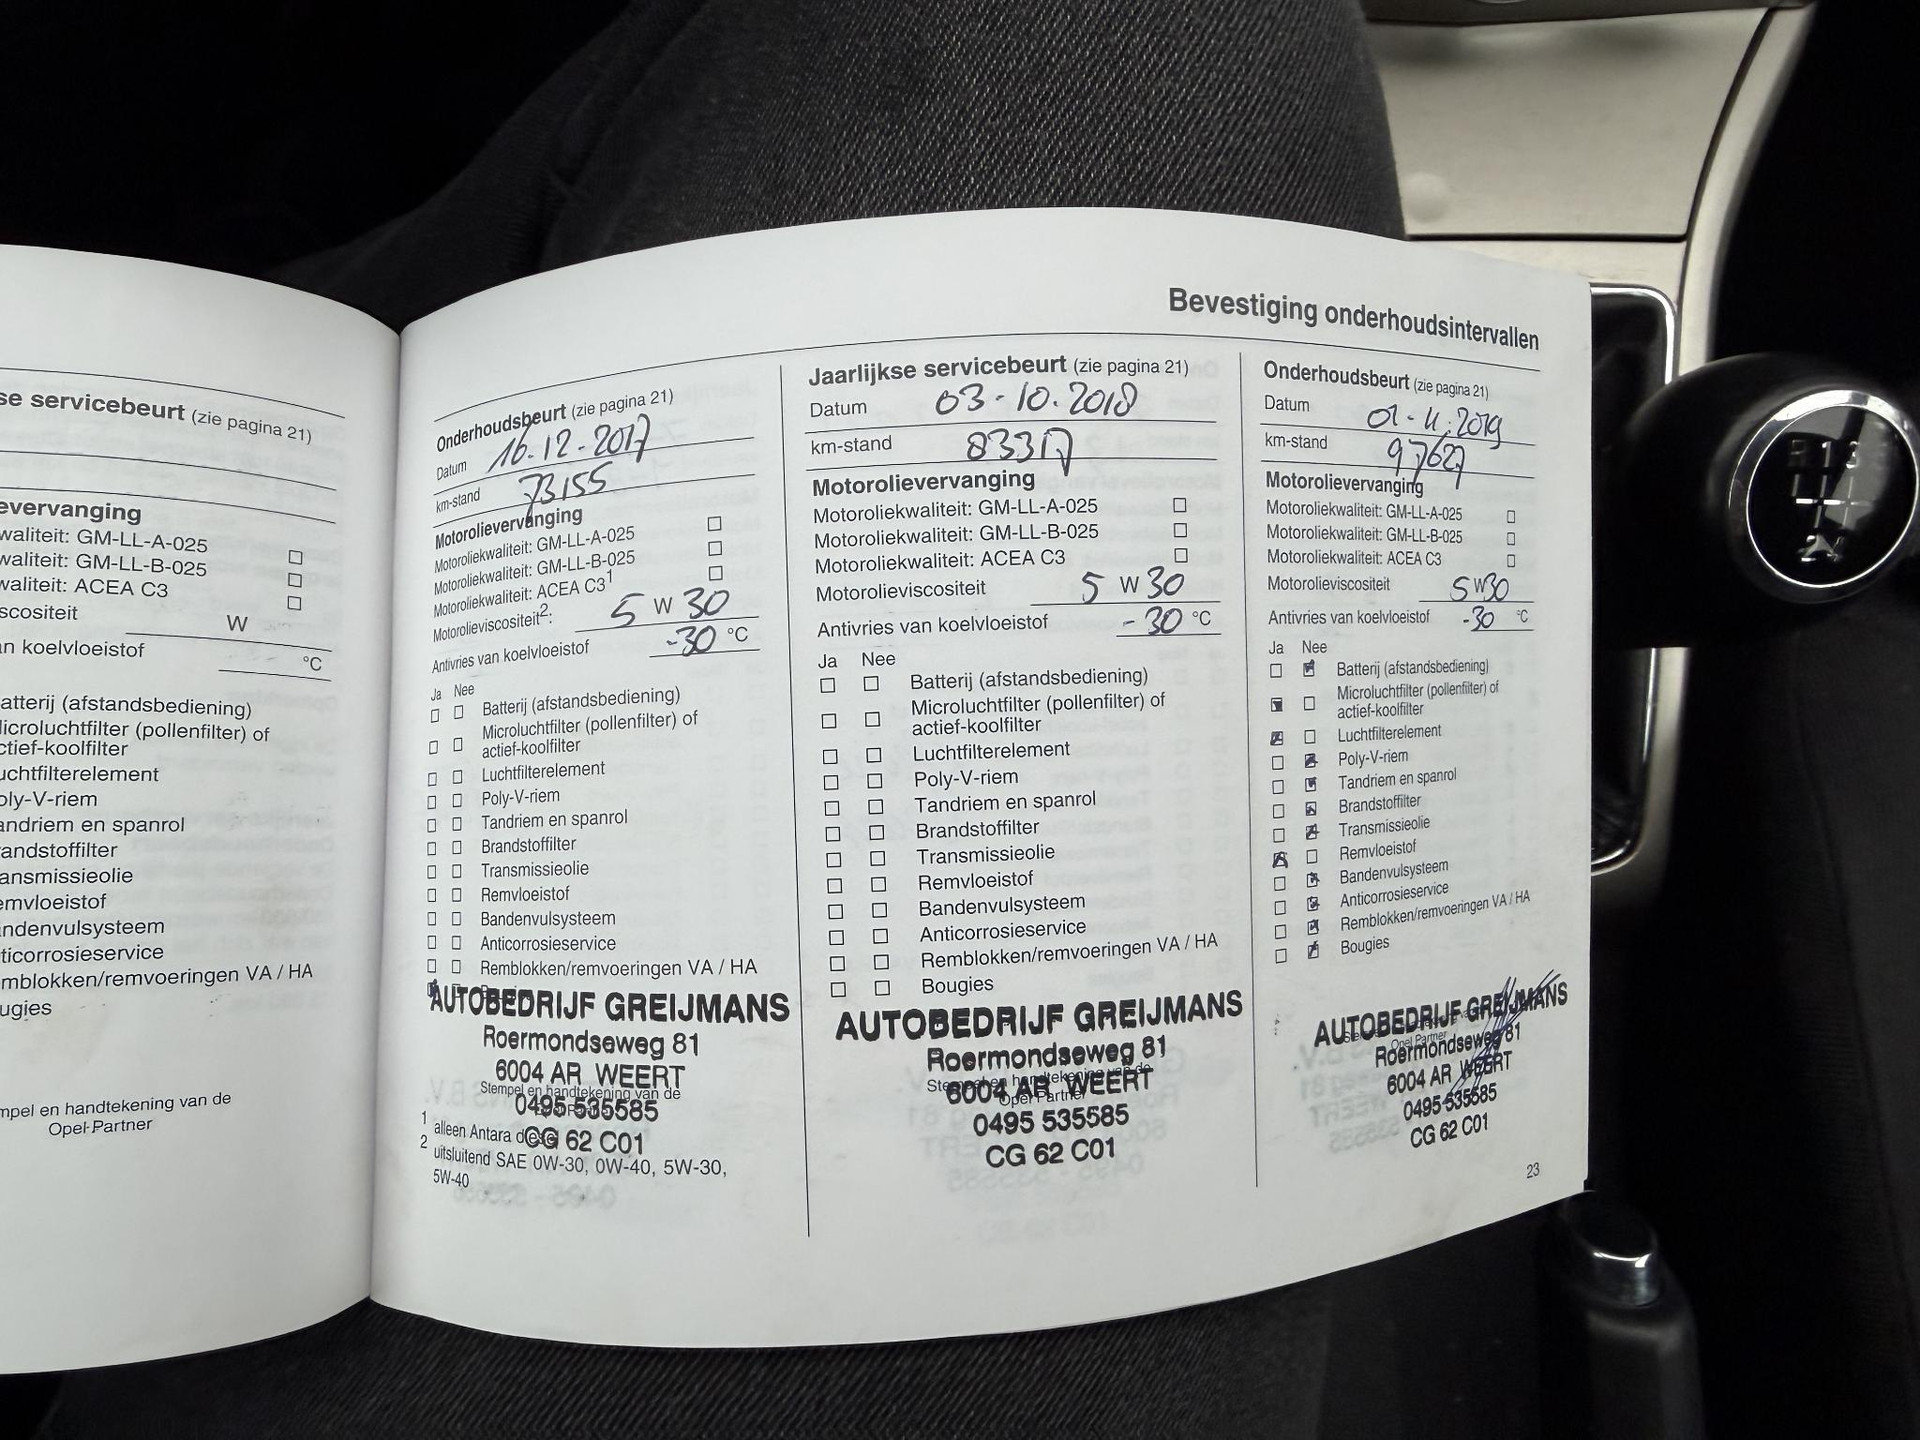 se servicebeurt (zie pagina 21)
evervanging
waliteit: GM-LL-A-025
waliteit: GM-LL-B-025
waliteit: ACEA C3
iscositeit W
n koelvloeistof °C
atterij (afstandsbediening)
icroluchtfilter (pollenfilter) of
ctief-koolfilter
uchtfilterelement
oly-V-riem
andriem en spanrol
randstoffilter
ansmissieolie
emvloeistof
andenvulsysteem
ticorrosieservice
mblokken/remvoeringen VA / HA
ugies
mpel en handtekening van de
Opel-Partner
Bevestiging onderhoudsintervallen
Onderhoudsbeurt (zie pagina 21)
Datum 16-12-2017
km-stand 73155
Motorolievervanging
Motoroliekwaliteit: GM-LL-A-025
Motoroliekwaliteit: GM-LL-B-025
Motoroliekwaliteit: ACEA C3¹
Motorolieviscositeit²: 5 W 30
Antivries van koelvloeistof -30 °C
Ja Nee
Batterij (afstandsbediening)
Microluchtfilter (pollenfilter) of
actief-koolfilter
Luchtfilterelement
Poly-V-riem
Tandriem en spanrol
Brandstoffilter
Transmissieolie
Remvloeistof
Bandenvulsysteem
Anticorrosieservice
Remblokken/remvoeringen VA / HA
AUTOBEDRIJF GREIJMANS
Roermondseweg 81
6004 AR WEERT
Stempel en handtekening van de
0495 535585
CG 62 C01
1 alleen Antara
2 uitsluitend SAE 0W-30, 0W-40, 5W-30,
5W-40
Jaarlijkse servicebeurt (zie pagina 21)
Datum 03-10.2018
km-stand 83317
Motorolievervanging
Motoroliekwaliteit: GM-LL-A-025
Motoroliekwaliteit: GM-LL-B-025
Motoroliekwaliteit: ACEA C3
Motorolieviscositeit 5 W 30
Antivries van koelvloeistof -30 °C
Ja Nee
Batterij (afstandsbediening)
Microluchtfilter (pollenfilter) of
actief-koolfilter
Luchtfilterelement
Poly-V-riem
Tandriem en spanrol
Brandstoffilter
Transmissieolie
Remvloeistof
Bandenvulsysteem
Anticorrosieservice
Remblokken/remvoeringen VA / HA
Bougies
AUTOBEDRIJF GREIJMANS
Roermondseweg 81
Stempel en handtekening van de
6004 AR WEERT
Opel Partner
0495 535585
CG 62 C01
Onderhoudsbeurt (zie pagina 21)
Datum 01-11-2019
km-stand 97627
Motorolievervanging
Motoroliekwaliteit: GM-LL-A-025
Motoroliekwaliteit: GM-LL-B-025
Motoroliekwaliteit: ACEA C3
Motorolieviscositeit 5 W 30
Antivries van koelvloeistof -30 °C
Ja Nee
Batterij (afstandsbediening)
Microluchtfilter (pollenfilter) of
actief-koolfilter
Luchtfilterelement
Poly-V-riem
Tandriem en spanrol
Brandstoffilter
Transmissieolie
Remvloeistof
Bandenvulsysteem
Anticorrosieservice
Remblokken/remvoeringen VA / HA
Bougies
AUTOBEDRIJF GREIJMANS
Opel Partner
Roermondseweg 81
6004 AR WEERT
0495 535585
CG 62 C01
23
R 1 3
2 4